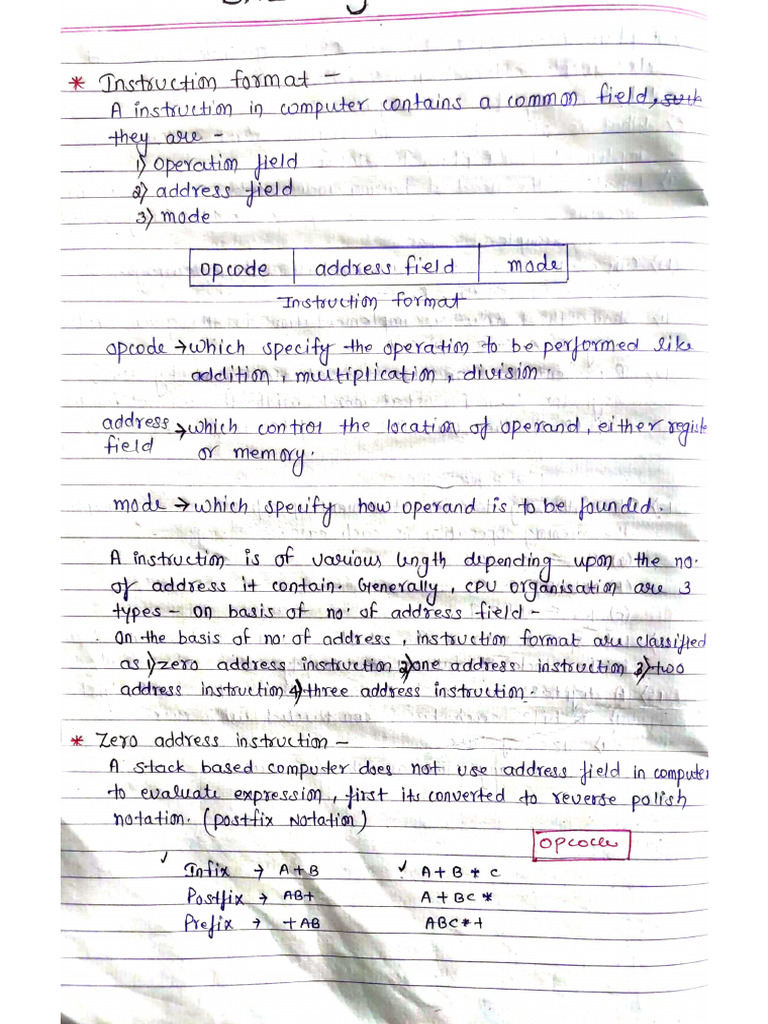 * Instruction format -
A instruction in computer contains a common field, such
they are -
1) operation field
2) address field
3) mode
opcode | address field | mode
Instruction format
opcode → which specify the operation to be performed like
addition, multiplication, division.
address → which control the location of operand, either registe
field or memory.
mode → which specify how operand is to be founded.
A instruction is of various length depending upon the no.
of address it contain. Generally, CPU organisation are 3
types - on basis of no. of address field -
on the basis of no. of address, instruction format are classified
as 1) zero address instruction 2) one address instruction 3) two
address instruction 4) three address instruction.
* Zero address instruction -
A stack based computer does not use address field in computer
to evaluate expression, first its converted to reverse polish
notation. (postfix Notation)
opcode
✓ Infix → A+B ✓ A + B * C
Postfix → AB+ A + BC *
Prefix → +AB ABC*+